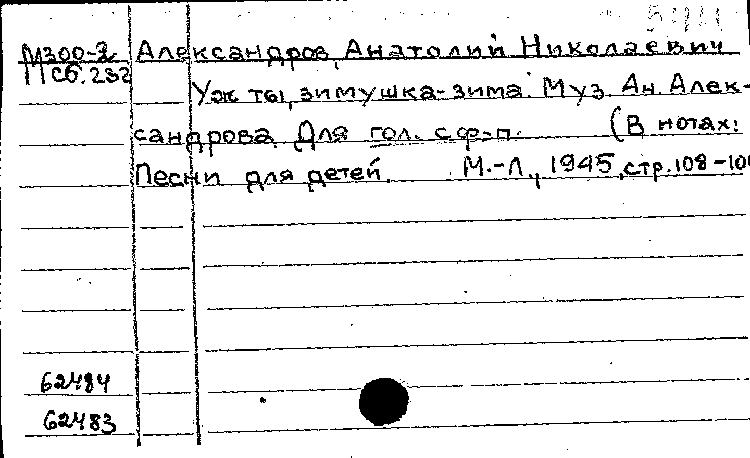 М300-2 Александров, Анатолий Николаевич
Псб. 232
Уж ты, зимушка-зима. Муз. Ан. Алек-
сандрова. Для гол. с ф-п. (В нотах:
Песни для детей. М.-Л., 1945, стр. 108-
62484
62483